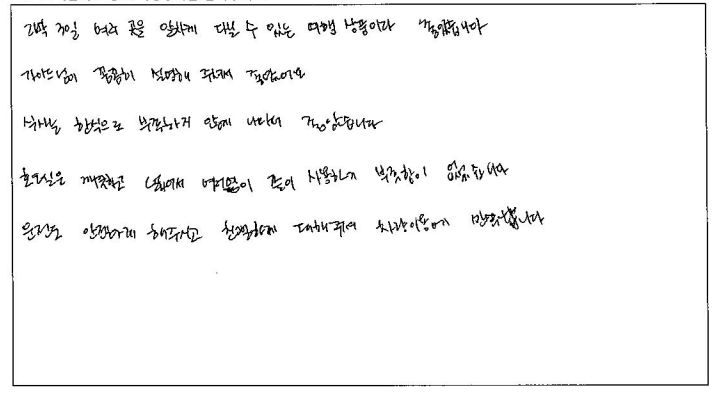 2박 3일 여러 곳을 알차게 다닐 수 있는 여행 상품이라 좋았습니다
가이드님이 꼼꼼히 설명해 주셔서 좋았어요
식사는 한식으로 부족하지 않게 나와서 좋았습니다
호텔실은 깨끗하고 넓어서 여럿이 사용하기 부족함이 없었습니다
운전도 안전하게 해주시고 친절하게 대해줘서 차량이용에 만족합니다